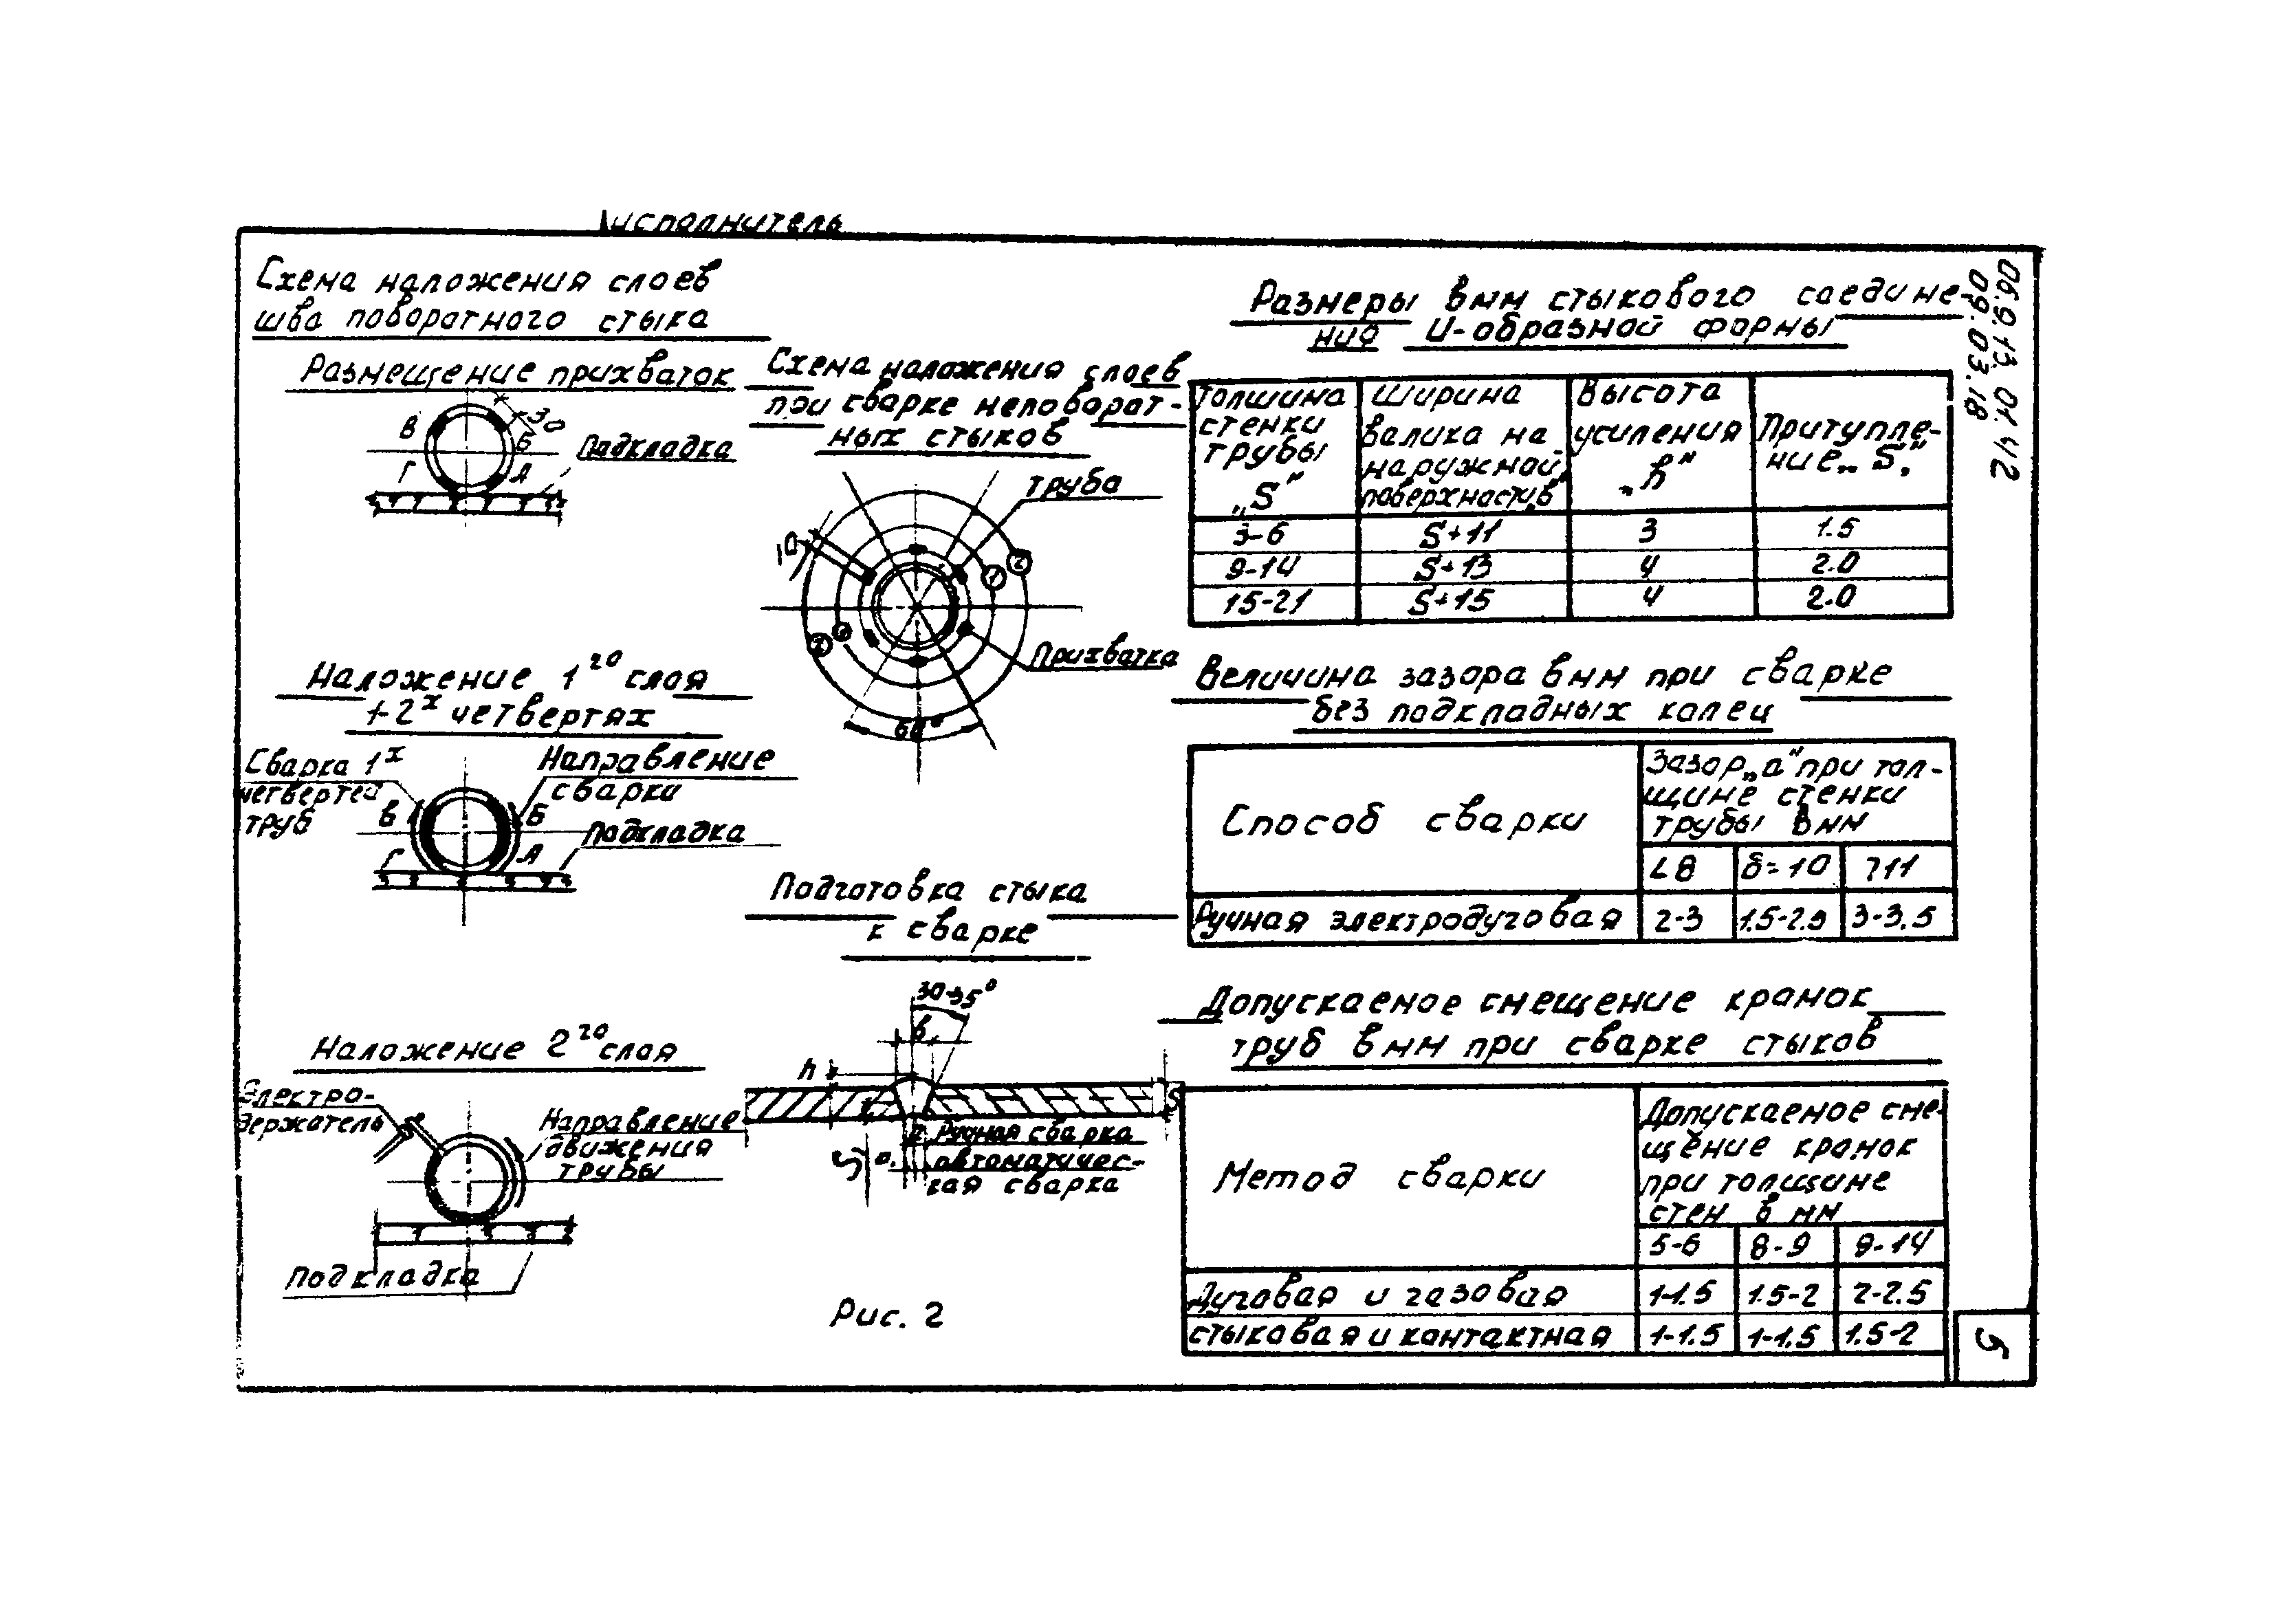 исполнитель
Схема наложения слоев
шва поворотного стыка
Размещение прихваток
В
30
Б
Подкладка
Г
А
Наложение 1го слоя
1-2х четвертях
Сварка 1х
четвертей
труб
Направление
сварки
В
Б
Подкладка
Г
А
Наложение 2го слоя
Электро-
держатель
Направление
движения
трубы
Подкладка
Схема наложения слоев
при сварке неповорот-
ных стыков
труба
10
1
2
1
2
Прихватка
60°
Подготовка стыка
к сварке
30-35°
в
h
S
Ручная сварка
S₁
а
автоматичес-
кая сварка
Рис. 2
Размеры в мм стыкового соедине-
ния U-образной формы
Толщина
стенки
трубы
„S"
Ширина
валика на
наружной
поверхности „в"
Высота
усиления
„h"
Притупле-
ние „S₁"
3-6
S+11
3
1.5
9-14
S+13
4
2.0
15-21
S+15
4
2.0
Величина зазора в мм при сварке
без подкладных колец
Способ сварки
Зазор „а" при тол-
щине стенки
трубы в мм
<8
δ=10
>11
Ручная электродуговая
2-3
1.5-2.5
3-3.5
Допускаемое смещение кромок
труб в мм при сварке стыков
Метод сварки
Допускаемое сме-
щение кромок
при толщине
стен в мм
5-6
8-9
9-14
Дуговая и газовая
1-1.5
1.5-2
2-2.5
стыковая и контактная
1-1.5
1-1.5
1.5-2
06.9.13.01.42
09.03.18
5